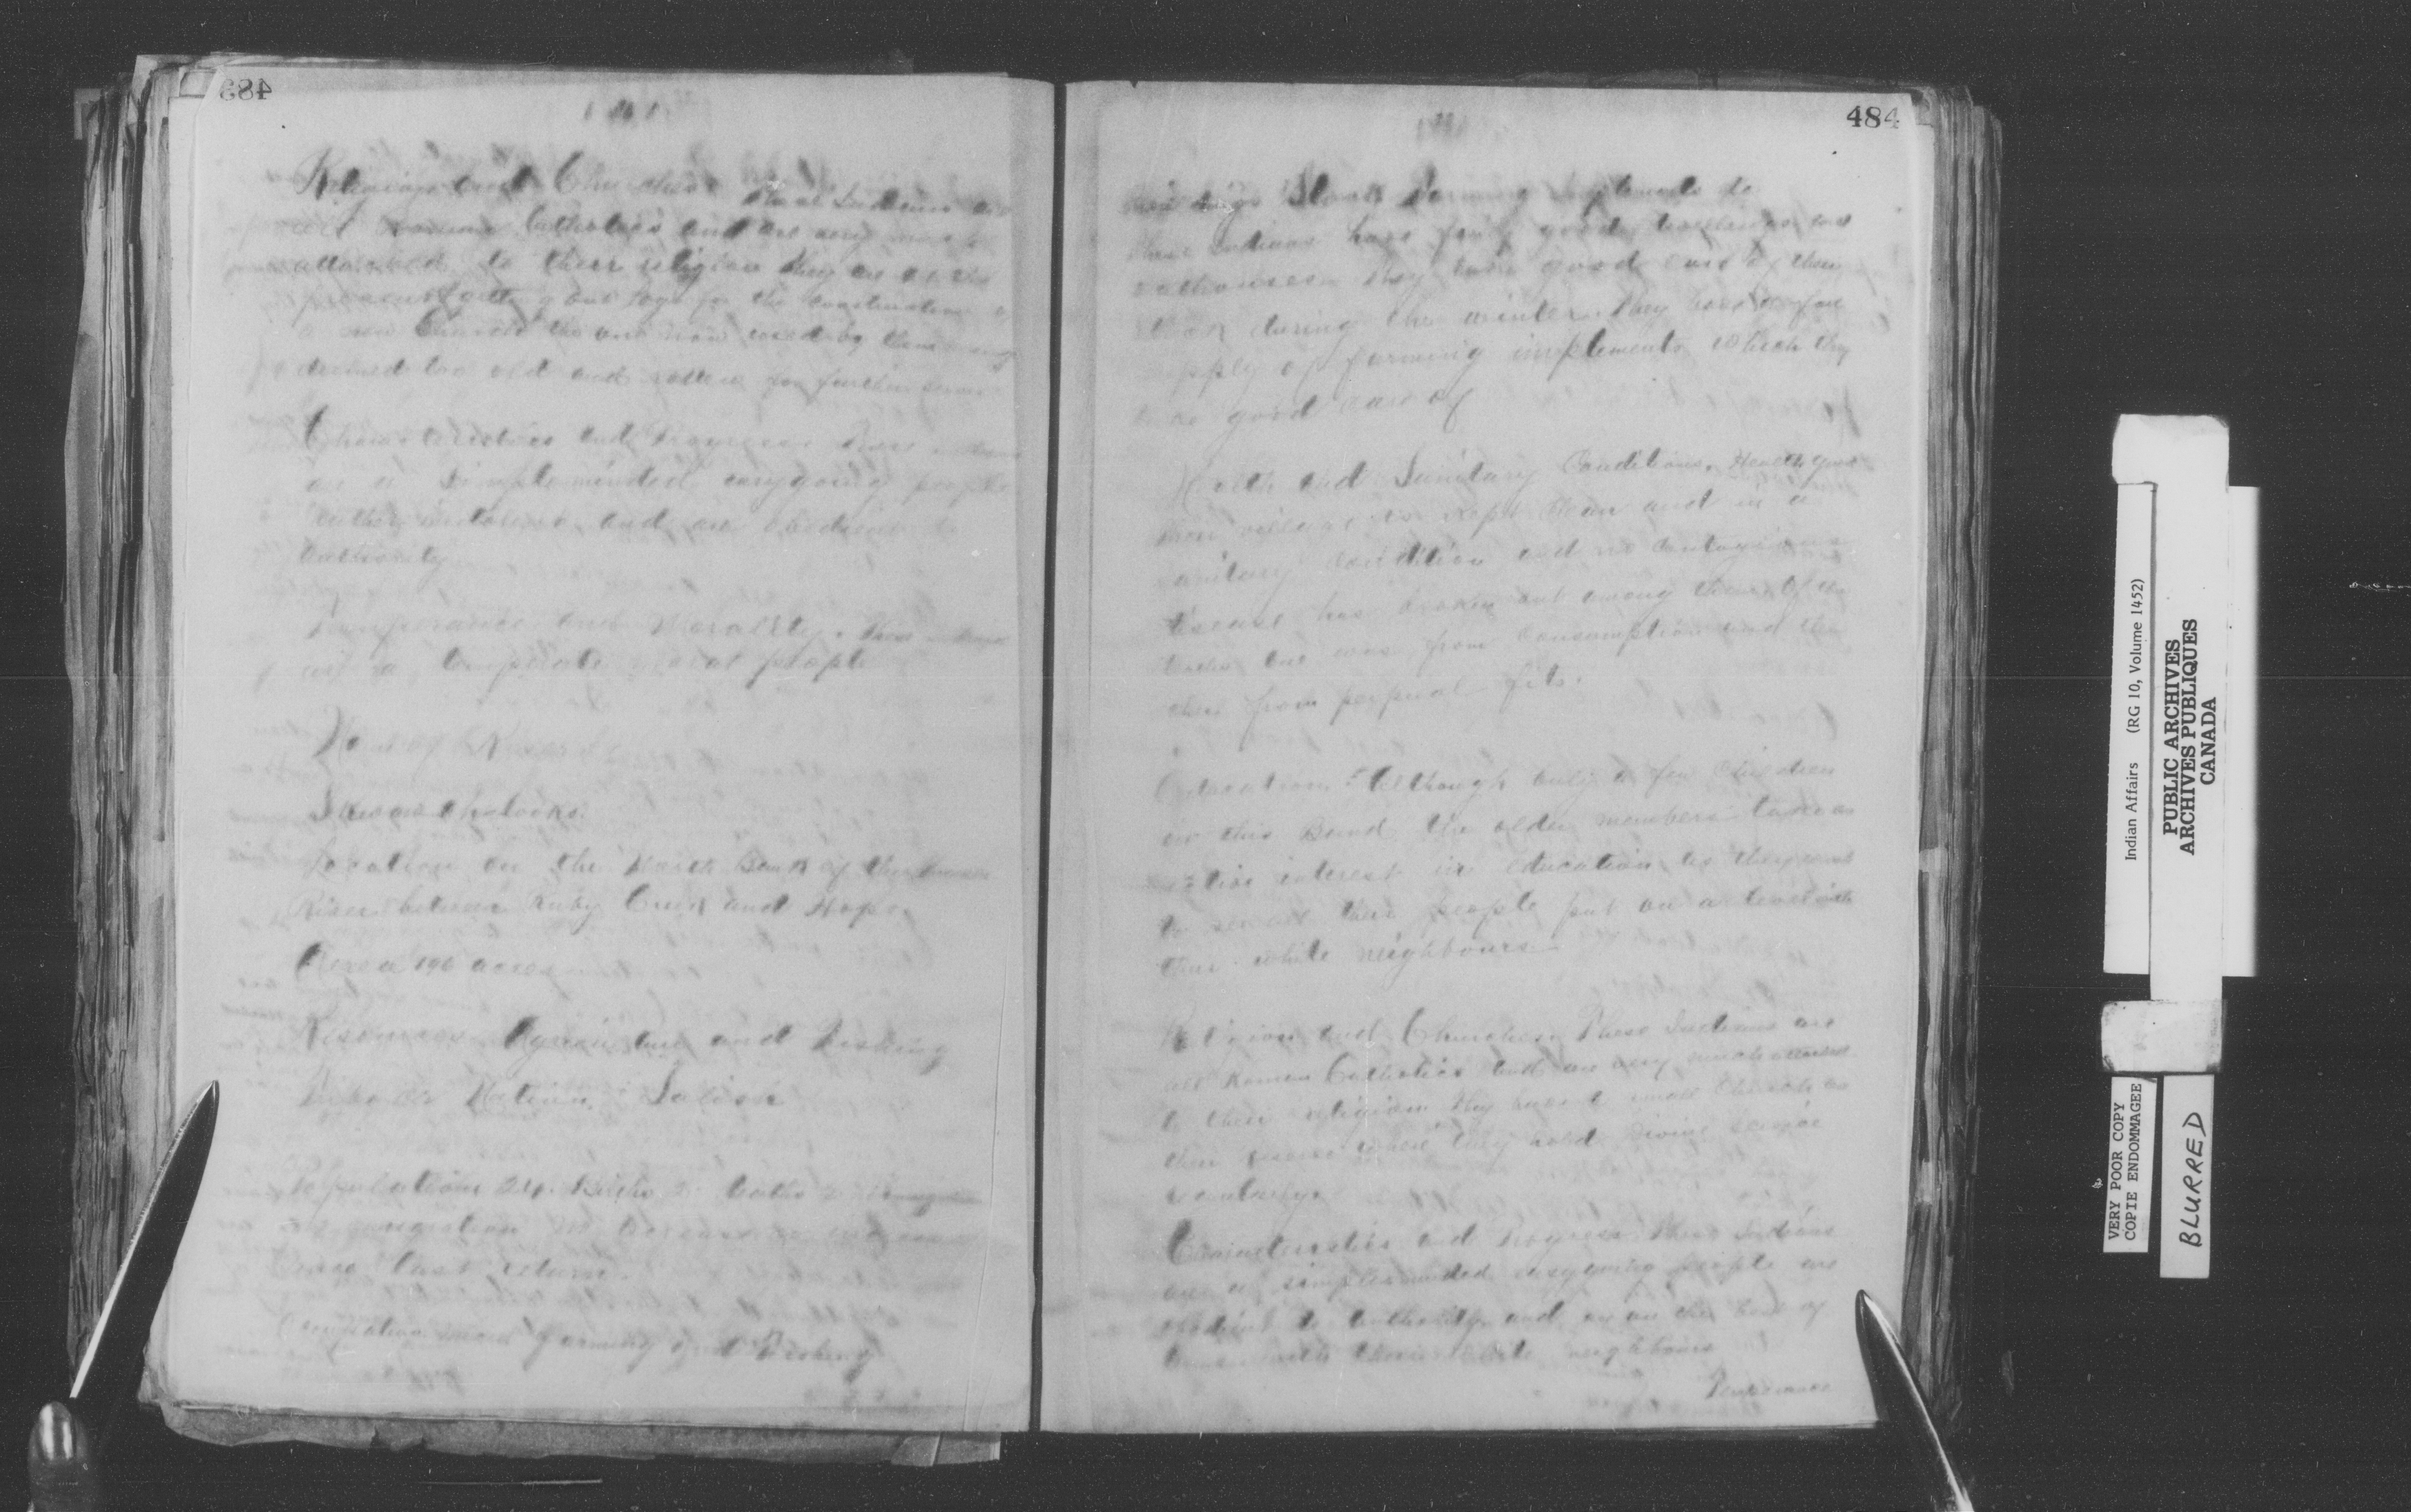 483
Religion and Churches These Indians are
all Roman Catholics and are very much
attached to their religion they are at the
present getting out logs for the construction of
a new Church the one now used by them being
declared too old and rotten for further service
Characteristics and Progress These Indians
are a simple minded easygoing people
rather indolent and are obedient to
authority
Temperance and Morality. These Indians
are a temperate moral people
Name of Reserve
Skawahlooks.
Location on the North Bank of the Fraser
River between Ruby Creek and Hope.
Area 196 acres
Resources Agriculture and Fishing
Tribe or Nation. Salish
Population 24. Births 2. Deaths 2
immigration no increase or decrease
since last return.
Occupation Farming and Fishing
484
Buildings Stock Farming Implements &c
These Indians have fairly good dwellings and
outhouses they take good care of their
stock during the winter they have a fair
supply of farming implements which they
take good care of
Health and Sanitary Conditions. Health good
their village is kept clean and in a
sanitary condition and no contagious
disease has broken out among them. Of the
deaths one was from Consumption and the
other from perperal fits.
Education. Although only a few children
on this Band the older members take an
active interest in education as they want
to see all their people put on a level with
their white neighbours
Religion and Churches. These Indians are
all Roman Catholics and are very much attached
to their religion they have a small Church on
their reserve where they hold divine service
regularly.
Characteristics and Progress These Indians
are a simpleminded easygoing people are
obedient to authority and are on the best of
terms with their white neighbours
Temperance
Indian Affairs (RG 10, Volume 1452)
PUBLIC ARCHIVES
ARCHIVES PUBLIQUES
CANADA
VERY POOR COPY
COPIE ENDOMMAGEE
BLURRED